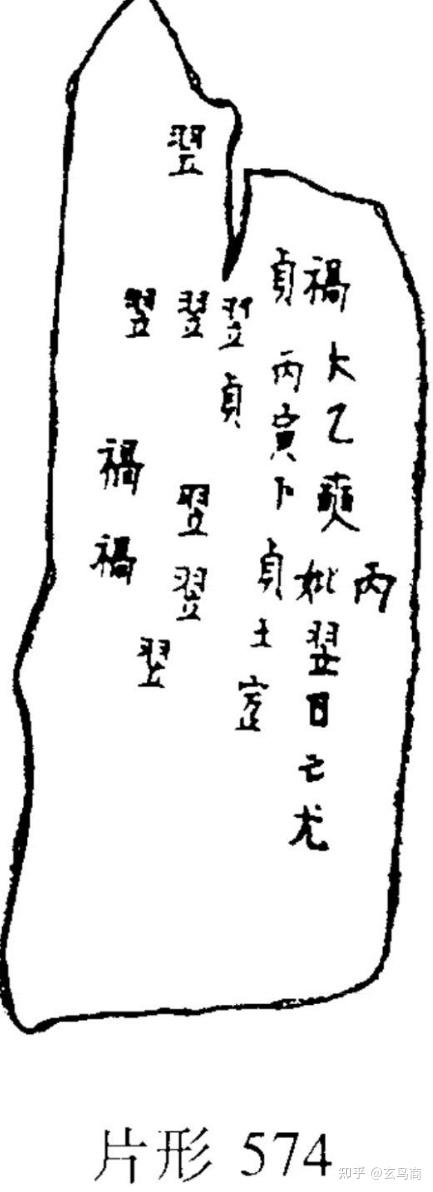 禍禍
翌翌
翌翌翌翌
翌貞
貞丙寅卜貞王㝎
禍大乙奭妣丙翌日亡尤
片形 574
知乎 @玄鸟商